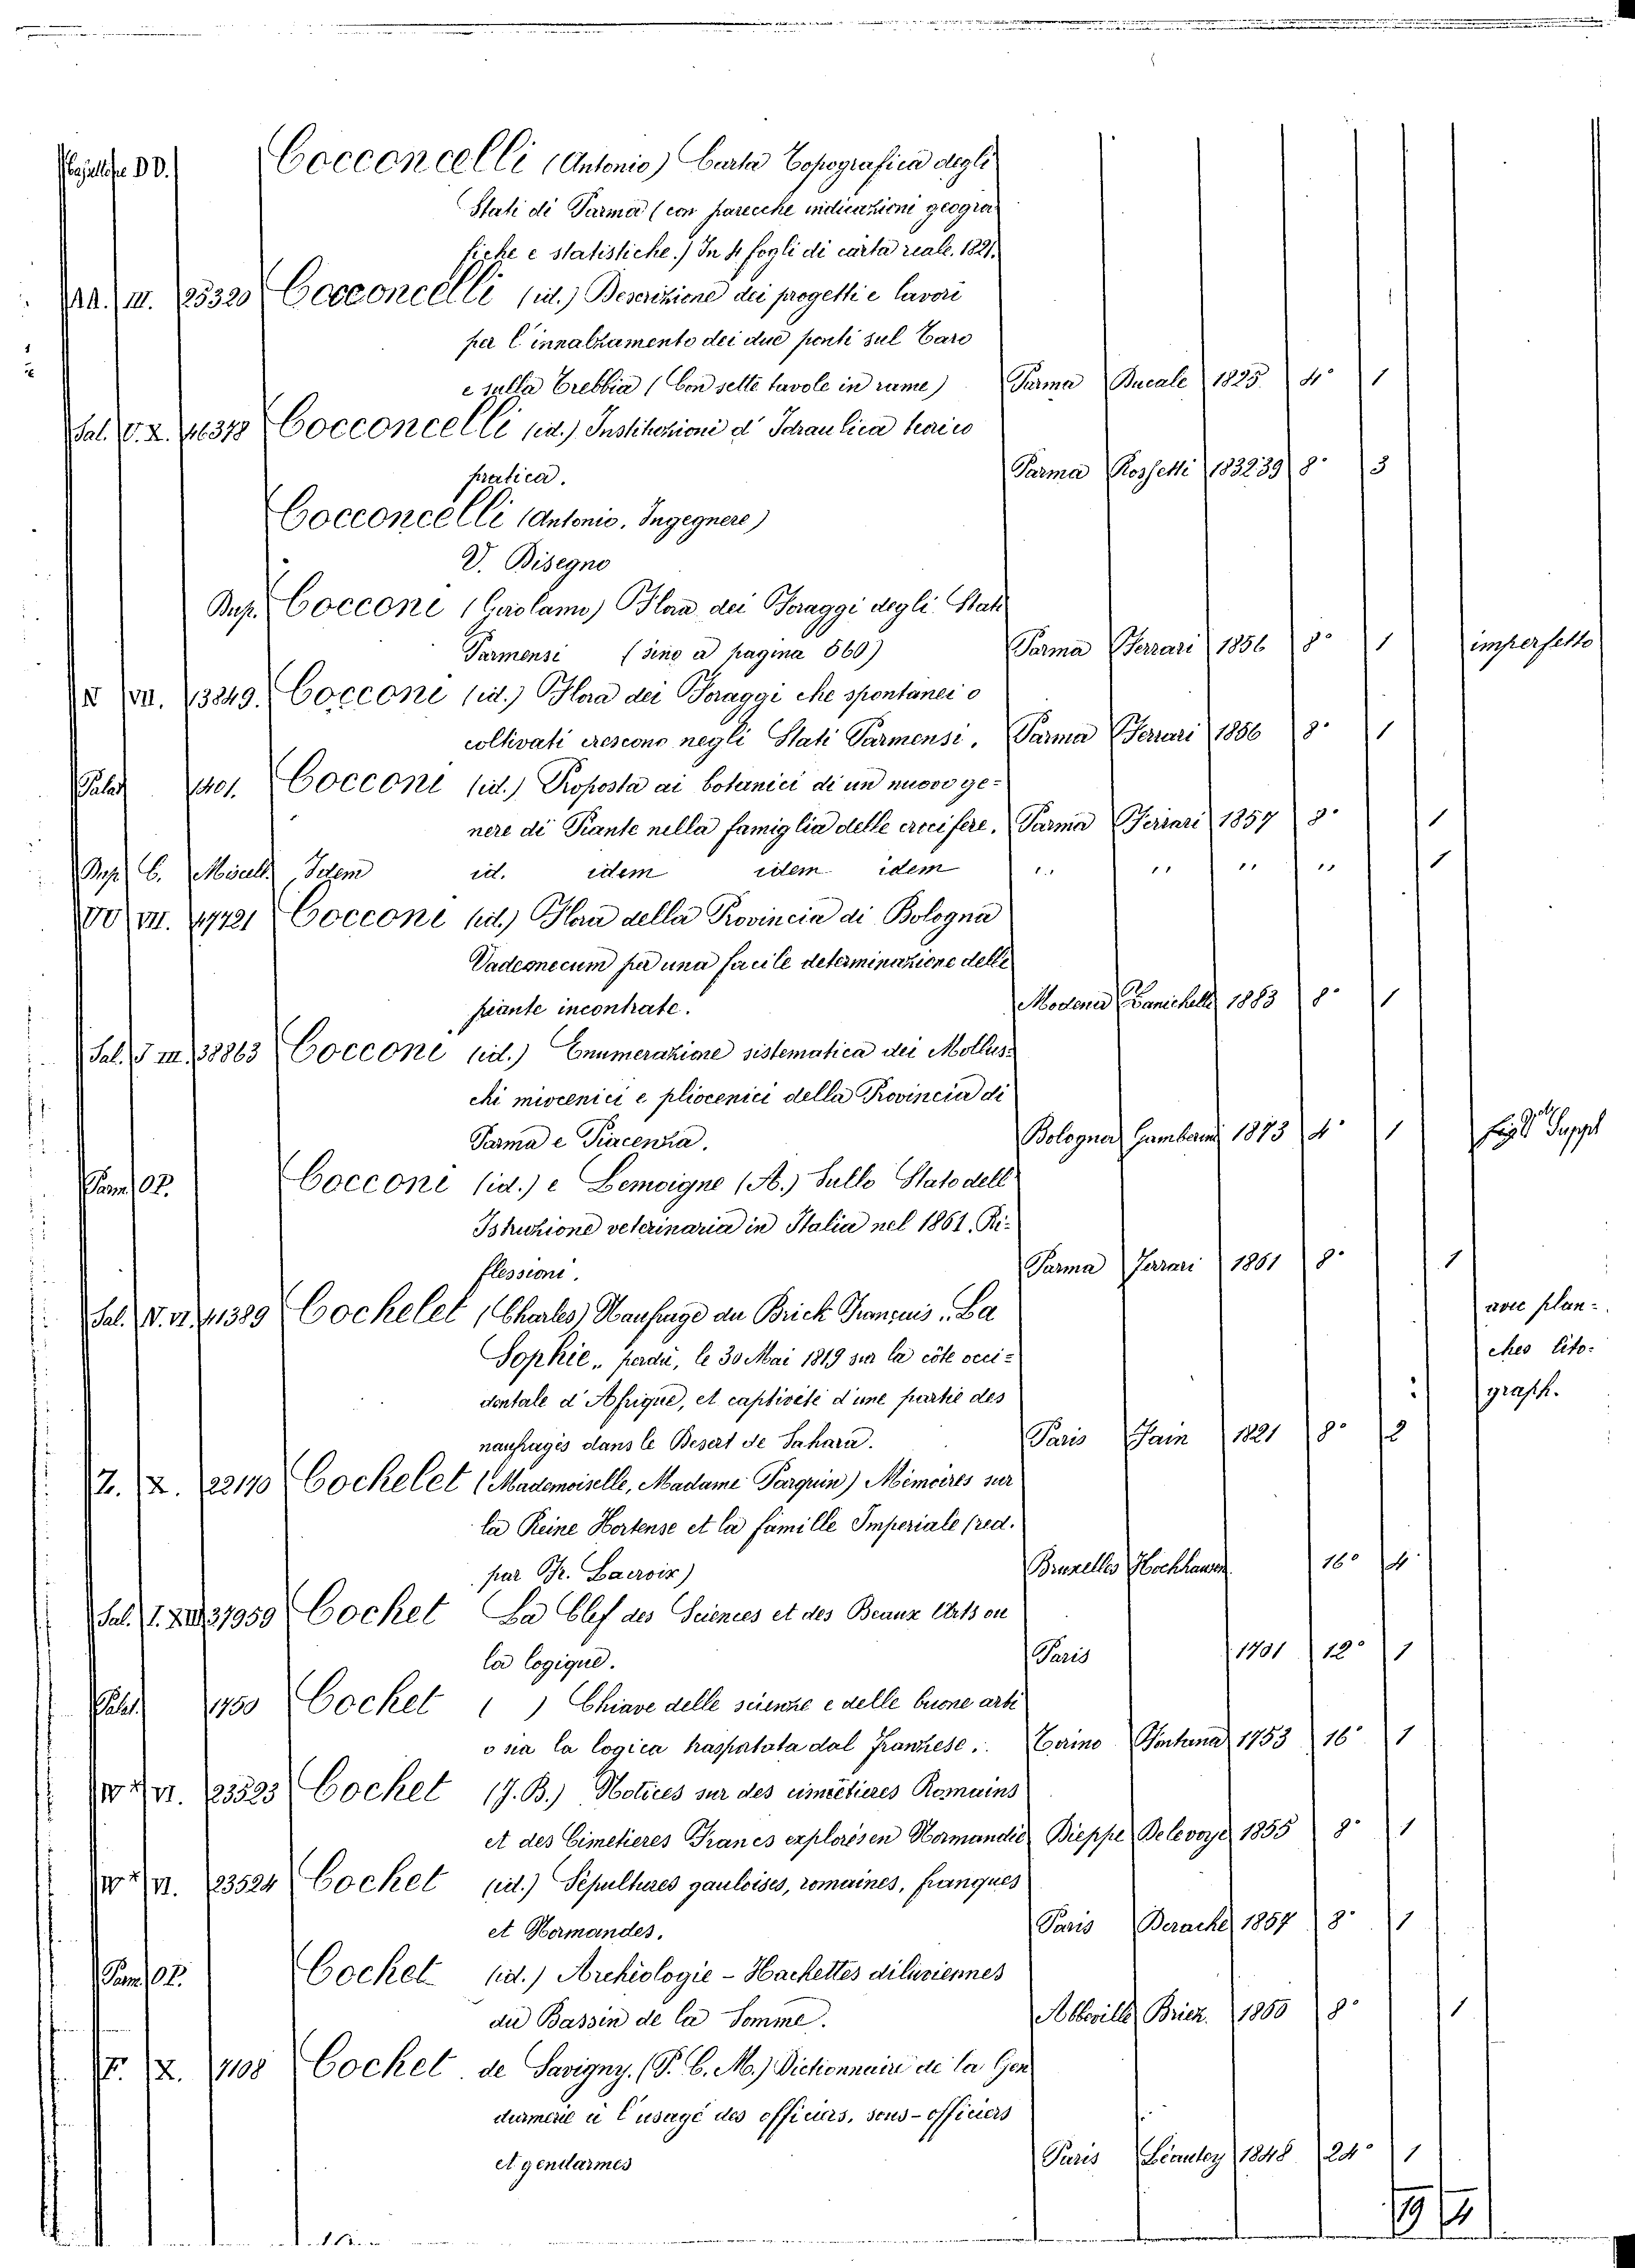 DD. Cocconcelli (Antonio) Carta Topografica degli
Stati di Parma (con parecche indicazioni geogra
fiche e statistiche.) In 4 fogli di carta reale. 1821.
AA. III. 25320 Cocconcelli (id.) Descrizione dei progetti e lavori
per l'innalzamento dei due ponti sul Taro
e sulla Trebbia (Con sette tavole in rame) Parma Ducale 1825 4° 1
Sal. V. X. 46378 Cocconcelli (id.) Institutioni d'Idraulica teorico
pratica. Parma Rossetti 183239 8° 3
Cocconcelli (Antonio, Ingegnere)
V. Bisegno
Dup. Cocconi (Girolamo) Flora dei Foraggi degli Stati
Parmensi (sino a pagina 560) Parma Ferrari 1856 8° 1 imperfetto
N VII. 13249. Cocconi (id.) Flora dei Foraggi che spontanei o
coltivati crescono negli Stati Parmensi. Parma Ferrari 1856 8° 1
Palat 1401. Cocconi (id.) Proposta ai botanici di un nuovo ge-
nere di Piante nella famiglia delle crocifere. Parma Ferrari 1857 8° 1
Dup. C. Miscell. Idem id. idem idem idem " " " " 1
VII. 49721 Cocconi (id.) Flora della Provincia di Bologna
Vademecum per una facile determinazione delle
piante incontrate. Modena Zanichelli 1883 8° 1
Sal. I III. 38863 Cocconi (id.) Enumerazione sistematica dei Mollus-
chi miocenici e pliocenici della Provincia di
Parma e Piacenza. Bologna Gamberini 1873 4° 1 Suppl
Pam. OP. Cocconi (id.) e Lemoigne (A.) Sullo Stato dell'
Istruzione veterinaria in Italia nel 1861. Ri-
flessioni. Parma Ferrari 1861 8° 1
Sal. V. VI. 41389 Cochelet (Charles) Naufrage du Brick Français „La
Sophie„ perdu, le 30 Mai 1819 sur la côte occi-
dentale d'Afrique, et captivité d'une partie des
naufragés dans le Desert de Sahara. Paris Jain 1821 8° 2 avec plan-
ches lito-
graph.
Z. X. 22170 Cochelet (Mademoiselle, Madame Parquin) Mémoires sur
la Reine Hortense et la famille Imperiale (red.
par Fr. Lacroix) Bruxelles Hochhausen 16° 4
Sal. I. XIII 37959 Cochet La Clef des Sciences et des Beaux Arts ou
la logique. Paris 1701 12° 1
Palat. 1750 Cochet ( ) Chiave delle scienze e delle buone arti
o sia la logica trasportata dal franzese. Torino Fontana 1753 16° 1
VI. 23523 Cochet (J. B.) Notices sur des cimetieres Romains
et des Cimetieres Francs explorés en Normandie Dieppe Delevoye 1855 8° 1
VI. 23524 Cochet (id.) Sépultures gauloises, romaines, franques
et Normandes. Paris Derache 1857 8° 1
Pam. OP. Cochet (id.) Archéologie - Hachettes diluviennes
du Bassin de la Somme. Abbeville Briez. 1860 8° 1
F. X. 7108 Cochet de Savigny. (P. C. M.) Dictionnaire de la Gen
darmerie à l'usage des officiers, sous-officiers
et gendarmes Paris Léautey 1848 24° 1
19 4